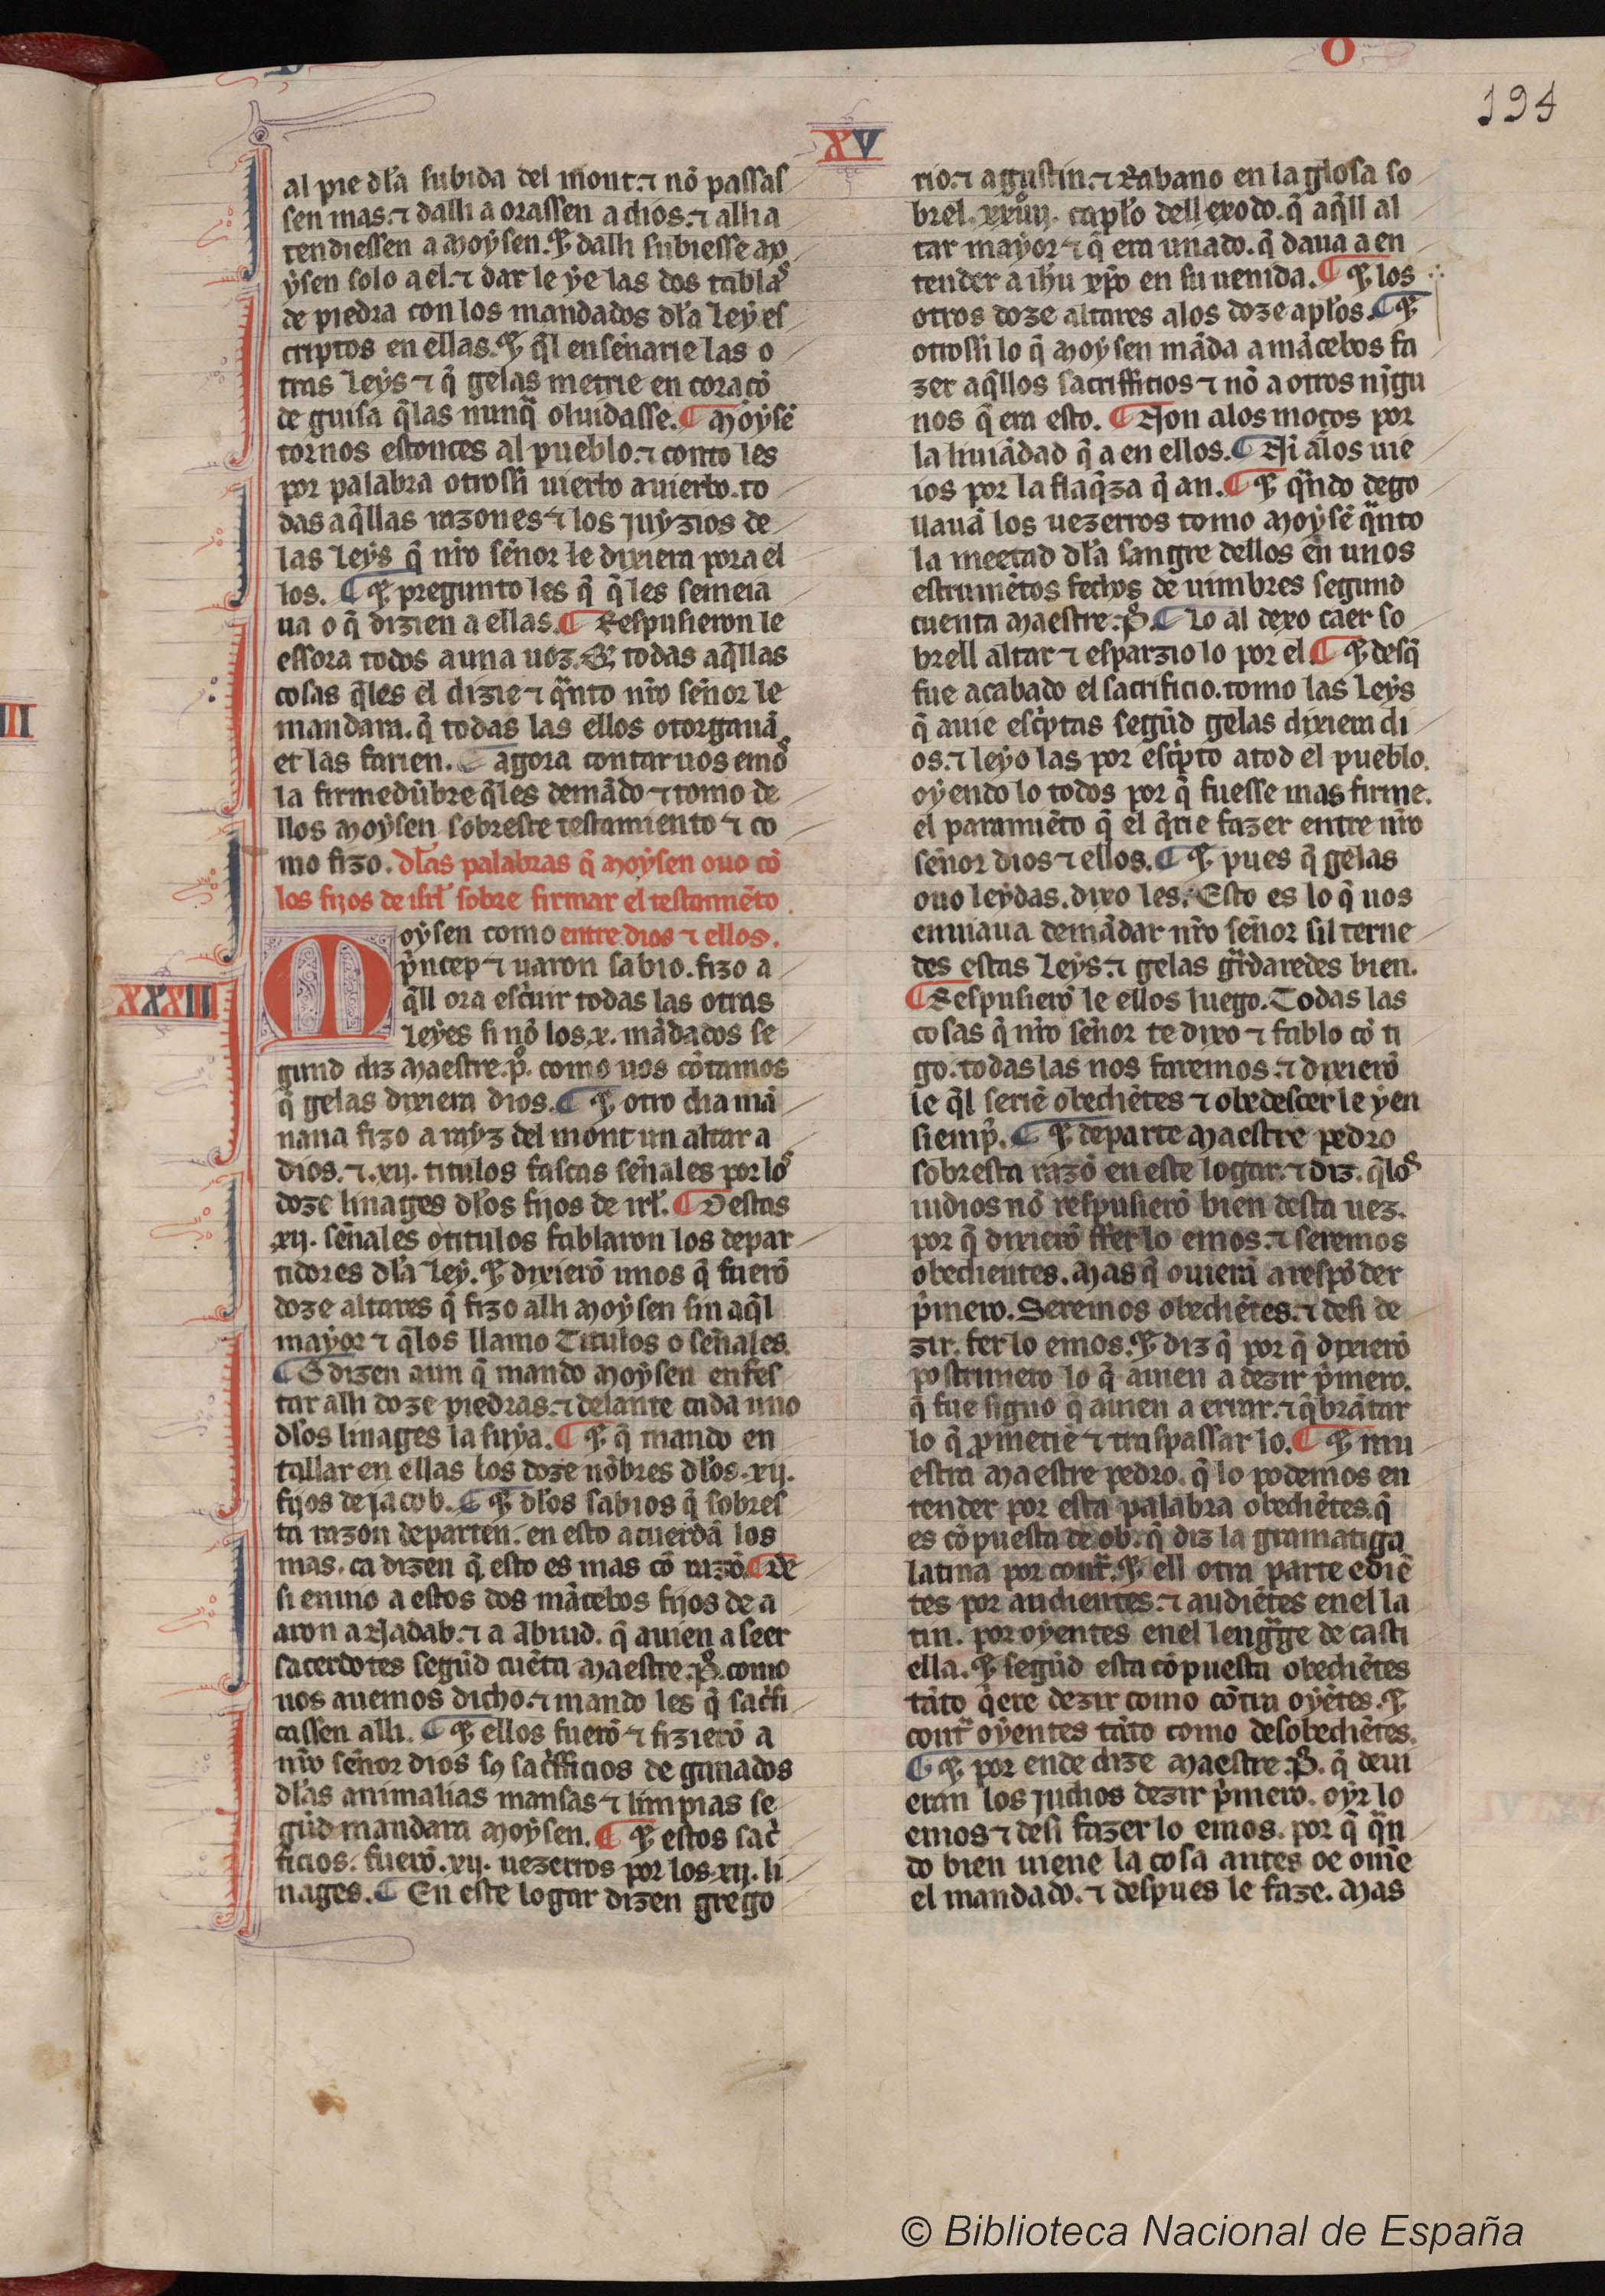 O
194
XV
al pie dl̃a subida del mont. ⁊ nõ passas
sen mas. ⁊ dalli a orassen a dios. ⁊ alli a
tendiessen a moysen. Et dalli subiesse mo
ysen solo a el. ⁊ dar le ye las dos tablas
de piedra con los mandados dl̃a ley es
criptos en ellas. Et q̃l ensennarie las o
tras leys ⁊ q̃ gelas metrie en coraçõ
de guisa q̃las nunq̃ oluidasse. ¶ Moysẽ
tornos estonces al pueblo. ⁊ conto les
por palabra otrossi uierbo a uierbo. to
das aq̃llas razones ⁊ los juyzios de
las leys q̃ nr̃o sẽnor le dixiera pora el
los. ¶ Et pregunto les q̃ q̃ les semeia
ua o q̃ dizien a ellas. ¶ Respusieron le
essora todos a una uoz. Et todas aq̃llas
cosas q̃les el dizie ⁊ q̃nto nr̃o sẽnor le
mandara. q̃ todas las ellos otorgauã
et las farien. ¶ agora contar uos emos
la firmedũbre q̃les demãdo ⁊ tomo de
llos moysen sobreste testamiento ⁊ co
mo fizo. dl̃as palabras q̃ moysen ouo cõ
los fijos de isrl̃ sobre firmar el testamẽto
Moysen como entre dios ⁊ ellos.
p̃ncep ⁊ uaron sabio. fizo a
q̃ll ora escriuir todas las otras
XXXIII
leyes si nõ los .x. mãdados se
gund diz maestre .p̃. como uos cõtamos
q̃ gelas dixiera dios. ¶ Et otro dia mã
nana fizo a rayz del mont un altar a
dios. ⁊ .xij. titulos fascas sẽnales por los
doze linages dl̃os fijos de irl̃. ¶ Destas
.xij. sẽnales o titulos fablaron los depar
tidores dl̃a ley. Et dixierõ unos q̃ fuerõ
doze altares q̃ fizo alli moysen sin aq̃l
mayor ⁊ q̃los llamo Titulos o sẽnales.
¶ E dizen aun q̃ mando moysen enfes
tar alli doze piedras. ⁊ delante cada uno
dl̃os linages la suya. ¶ Et q̃ mando en
tallar en ellas los doze nõbres dl̃os .xij.
fijos de jacob. ¶ Et dl̃os sabios q̃ sobres
ta razon departen. en esto acuerdã los
mas. ca dizen q̃ esto es mas cõ razõ. ¶ De
si enuio a estos dos mãcebos fijos de a
aron a Nadab. ⁊ a Abiud. q̃ auien a seer
sacerdotes segũd cuẽta maestre .P̃. como
uos auemos dicho. ⁊ mando les q̃ sacrifi
cassen alli. ¶ Et ellos fuerõ ⁊ fizierõ a
nr̃o señor dios sꝯ sacrifficios de ganados
dl̃as animalias mansas ⁊ limpias se
gũd mandara moysen. ¶ Et estos sacri
ficios. fuerõ .xij. uezerros por los .xij. li
nages. ¶ En este logar dizen grego
rio. ⁊ agustin. ⁊ Rabano en la glosa so
brel .xxiiij. capl̃o dell exodo. q̃ aq̃ll al
tar mayor ⁊ q̃ era unado. q̃ daua a en
tender a ih̃u xp̃o en su uenida. ¶ Et los
otros doze altares a los doze apl̃os. ¶ Et
otrossi lo q̃ moysen mãda a mãcebos fa
zer aq̃llos sacrifficios ⁊ nõ a otros nĩgu
nos q̃ era esto. ¶ Non a los moços por
la liuiãdad q̃ a en ellos. ¶ Nĩ a los uie
ios por la flaq̃za q̃ an. ¶ Et q̃ndo dego
llauã los uezerros tomo moysẽ q̃nto
la meetad dl̃a sangre dellos en unos
estrumẽtos fechos de uimbres segund
cuenta maestre .P̃. ¶ Lo al dexo caer so
brell altar ⁊ esparzio lo por el. ¶ Et desq̃
fue acabado el sacrificio. tomo las leys
q̃ auie escriptas segũd gelas dixiera di
os. ⁊ leyo las por escripto a tod el pueblo.
oyendo lo todos por q̃ fuesse mas firme.
el paramiẽto q̃ el q̃rie fazer entre nr̃o
señor dios ⁊ ellos. ¶ Et pues q̃ gelas
ouo leydas. dixo les. Esto es lo q̃ uos
enuiaua demãdar nr̃o señor sil terne
des estas leys. ⁊ gelas gr̃daredes bien.
¶ Respusierõ le ellos luego. Todas las
cosas q̃ nr̃o señor te dixo ⁊ fablo cõ ti
go. todas las nos faremos. ⁊ dixierõ
le q̃l seriẽ obediẽtes ⁊ obedescer le yen
siemp̃. ¶ Et departe maestre pedro
sobresta razõ en este logar. ⁊ diz. q̃los
iudios nõ respusierõ bien desta uez.
por q̃ dixierõ ffer lo emos. ⁊ seremos
obedientes. Mas q̃ ouierã a respõder
p̃mero. Seremos obediẽtes. ⁊ desi de
zir. fer lo emos. Et diz q̃ por q̃ dixierõ
postrimero lo q̃ auien a dezir p̃mero.
q̃ fue signo q̃ auien a errar. ⁊ q̃brãtar
lo q̃ ꝓmetiẽ ⁊ traspassar lo. ¶ Et mu
estra maestre pedro. q̃ lo podemos en
tender por esta palabra obediẽtes. q̃
es cõpuesta de ob. q̃ diz la gramatiga
latina por contr̃. Et ell otra parte ediẽ
tes por audientes. ⁊ audiẽtes en el la
tin. por oyentes en el lengũge de casti
ella. Et segũd esta cõpuesta obediẽtes
tãto q̃ere dezir como cõtra oyẽtes. Et
contr̃ oyentes tãto como desobediẽtes.
¶ Et por ende dize maestre .P̃. q̃ deui
eran los judios dezir p̃mero. oyr lo
emos ⁊ desi fazer lo emos. por q̃ q̃n
do bien uiene la cosa antes oe omẽ
el mandado. ⁊ despues le faze. Mas
© Biblioteca Nacional de España